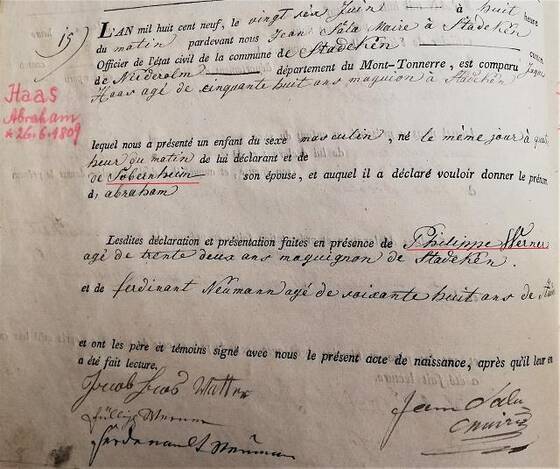 15)
L'AN mil huit cent neuf, le vingt six Juin à huit heure
du matin pardevant nous Jean Sala Maire à Stadeken
Officier de l'état civil de la commune de Stadeken canton
de Niederolm département du Mont-Tonnerre, est comparu
Haas agé de cinquante huit ans maquion à Stadeken
Haas
Abraham
* 26.6.1809
lequel nous a présenté un enfant du sexe masculin, né le même jour à
heur du matin de lui déclarant et de
de Sobernheim son épouse, et auquel il a déclaré vouloir donner le prénom
d'abraham
Lesdites déclaration et présentation faites en présence de Philippe Werner
agé de trente deux ans maquignon de Stadeken.
et de ferdinant Neumann agé de soixante huit ans de
et ont les père et témoins signé avec nous le présent acte de naissance, après qu'il leur en
a été fait lecture.
Jean Sala
maire